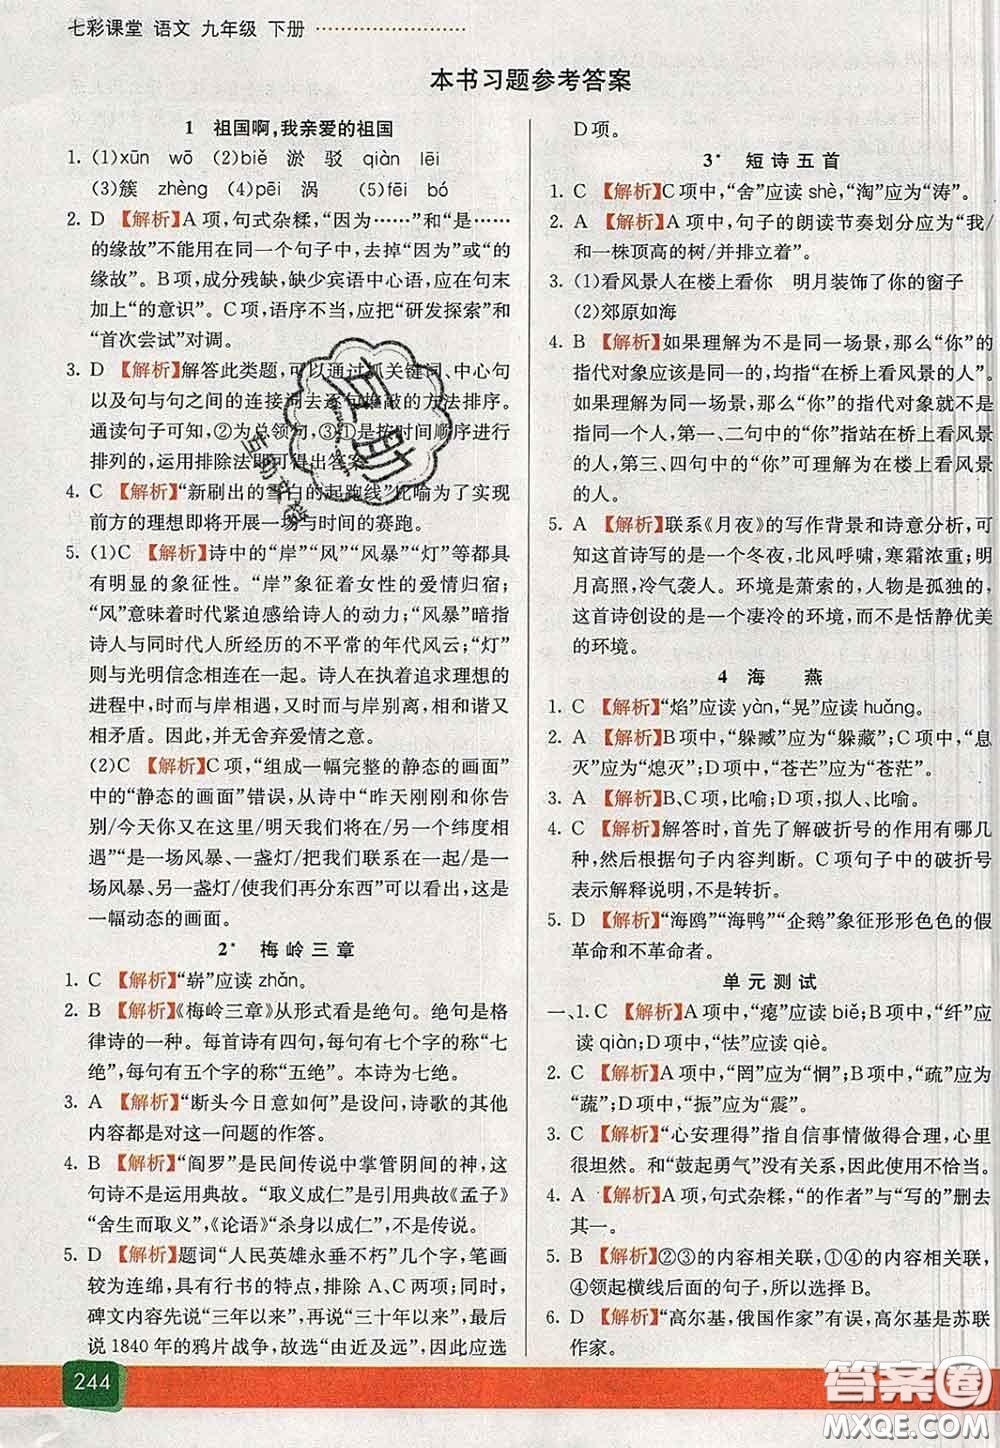 七彩课堂 语文 九年级 下册
本书习题参考答案
1 祖国啊,我亲爱的祖国
1. (1)xūn wō (2)biě 淤 驳 qiàn lěi
(3)簇 zhèng (4)pēi 涡 (5)fēi bó
2. D 【解析】A 项,句式杂糅,“因为……”和“是……
的缘故”不能用在同一个句子中,去掉“因为”或“的
缘故”。B 项,成分残缺,缺少宾语中心语,应在句末
加上“的意识”。C 项,语序不当,应把“研发探索”和
“首次尝试”对调。
3. D 【解析】解答此类题,可以通过抓关键词、中心句
以及句与句之间的连接词去逐句推敲的方法排序。
通读句子可知,②为总领句,③①是按先后顺序进行
排列的,运用排除法即可得出答案。
4. C 【解析】“新刷出的雪白的起跑线”比喻为了实现
前方的理想即将开展一场与时间的赛跑。
5. (1)C 【解析】诗中的“岸”“风”“风暴”“灯”等都具
有明显的象征性。“岸”象征着女性的爱情归宿;
“风”意味着时代紧迫感给诗人的动力;“风暴”暗指
诗人与同时代人所经历的不平常的年代风云;“灯”
则与光明信念相连在一起。诗人在执着追求理想的
进程中,时而与岸相遇,时而与岸别离,时而又与岸
相矛盾。并无舍弃爱情之意。
(2)C 【解析】C 项,“组成一幅完整的静态的画面”
中“静态的画面”错误,从诗句中“昨天刚刚和你告
别/今天你又在这里/明天我们将在另一个纬度相
遇”“是一场风暴、一盏灯/把我们联系在一起/是一
场风暴、另一盏灯/使我们再分东西”可以看出,这是
一幅动态的画面。
2* 梅岭三章
1. C 【解析】“崭”应读 zhǎn。
2. B 【解析】《梅岭三章》从形式看是绝句。绝句是格
律诗的一种。每首诗有四句,每句有七个字的称“七
绝”,每句有五个字的称“五绝”。本诗为七绝。
3. A 【解析】“断头今日意如何”是设问,诗歌的其他
内容都是对这一问题的作答。
4. B 【解析】“阎罗”是民间传说中掌管阴间的神,这
句诗不是运用典故。“取义成仁”是引用典故《孟子》
“舍生而取义”,《论语》“杀身以成仁”,不是传说。
5. D 【解析】题词“人民英雄永垂不朽”几个字,笔画
较为连绵,具有行书的特点,排除 A、C 两项;同时,
碑文内容先说“三年以来”,再说“三十年以来”,最后
说 1840 年的鸦片战争,是“由近及远”,因此应选
D 项。
3* 短诗五首
1. C 【解析】C 项中,“舍”应读 shè,“淘”应为“涛”。
2. A 【解析】A项中,句子的朗读节奏划分应为“我/
和一株顶高的树/并排立着”。
3. (1)看风景人在楼上看你 明月装饰了你的窗子
(2)郊原如海
4. B 【解析】如果理解为不同一场景,那么“你”的
指代对象应该是同一的,均指“在桥上看风景的人”。
如果理解为同一场景,那么“你”的指代对象就不应
该是同一的,第一、二句中的“你”指站在桥上看风景
的人,第三、四句中的“你”可理解为在楼上看风景
的人。
5. A 【解析】联系《月夜》的写作背景和诗意分析,可
知这首诗写的是一个冬夜,北风呼啸,寒霜浓重;明
月高照,冷气袭人。环境是萧索的,人物是孤独的,
这首诗创设的是一个凄冷的环境,而不是恬静优美
的环境。
4 海 燕
1. C 【解析】“焰”应读 yàn,“晃”应读 huǎng。
2. A 【解析】A 项中,“躲臧”应为“躲藏”;C 项中,“息
灭”应为“熄灭”;D 项中,“苍芒”应为“苍茫”。
3. A 【解析】B、C 项,比喻;D 项,拟人、比喻。
4. C 【解析】解答时,首先了解破折号的作用有哪几
种,然后根据句子内容判断。C 项句子中的破折号
表示解释说明,不是转折。
5. D 【解析】“海鸥”“海鸭”“企鹅”象征形形色色的假
革命和不革命者。
单元测试
一、1. C 【解析】A 项中,“瘪”应读 biě;B 项中,“纤”应
读 qiàn;D 项中,“怯”应读 qiè。
2. C 【解析】A 项中,“罔”应为“惘”;B 项中,“疏”应为
“蔬”;D 项中,“振”应为“震”。
3. C 【解析】“心安理得”指自信事情做得合理,心里
很坦然。和“鼓起勇气”没有关系,因此使用不当。
4. A 【解析】A 项,句式杂糅,“的作者”与“写的”删去
其一。
5. B 【解析】②③的内容相关联,①④的内容相关联,
④领起横线后面的句子,所以选择 B。
6. D 【解析】“高尔基,俄国作家”有误,高尔基是苏联
作家。
244
答案圈
MXQE.COM